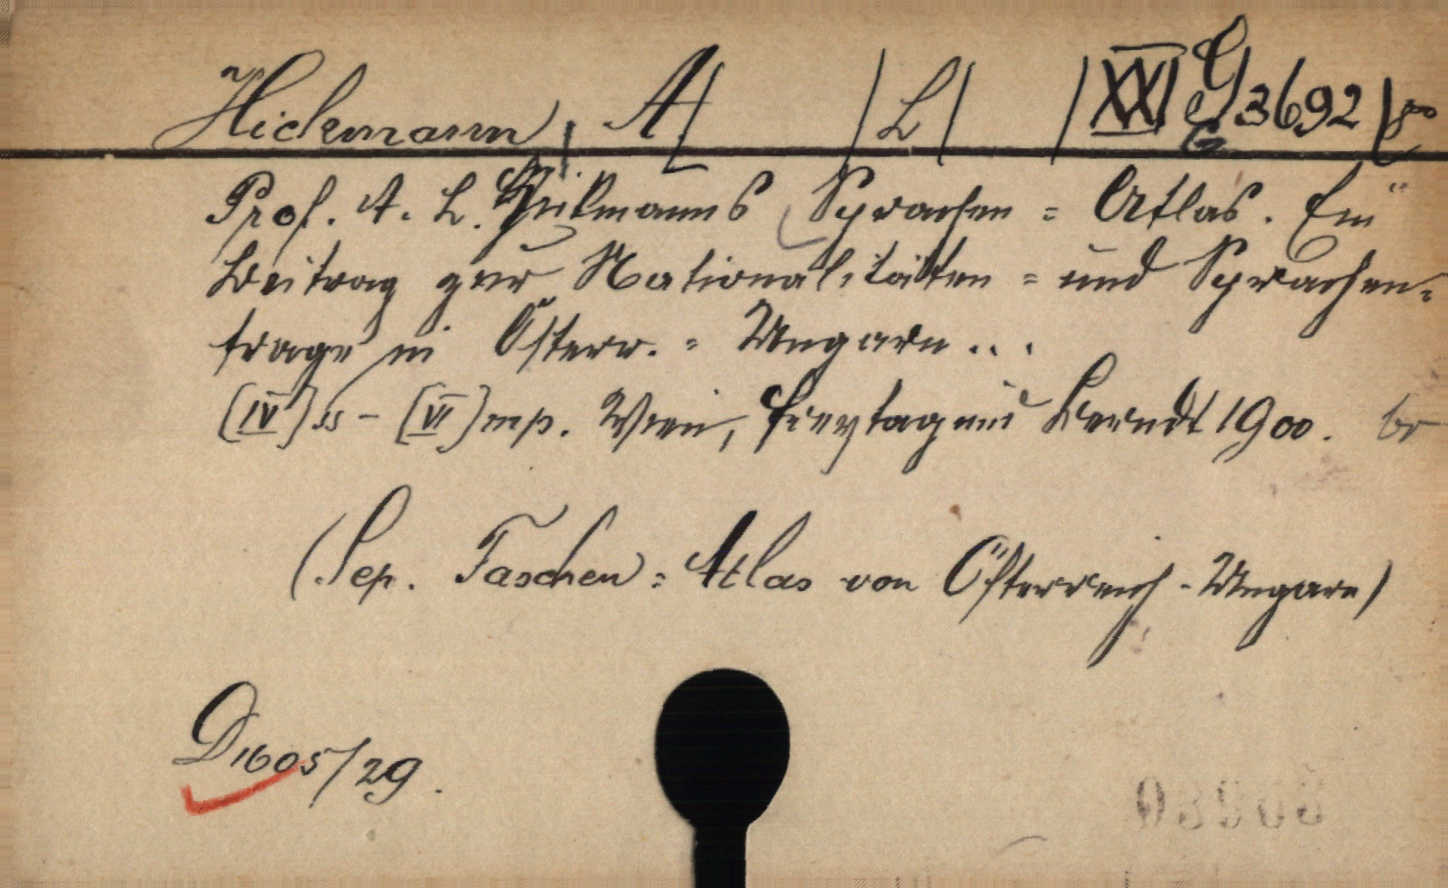 Hickmann, A/ /L/ /XXI G 3692/8°
Prof. A. L. Hickmanns Sprachen = Atlas. Ein
Beitrag zur Nationalitäten = und Sprachen-
frage in Österr. = Ungarn...
[IV] ss - [VI] mp. Wien, Freytag und Berndt 1900. br
(Sep. Taschen = Atlas von Österreich - Ungarn)
D1605/29.